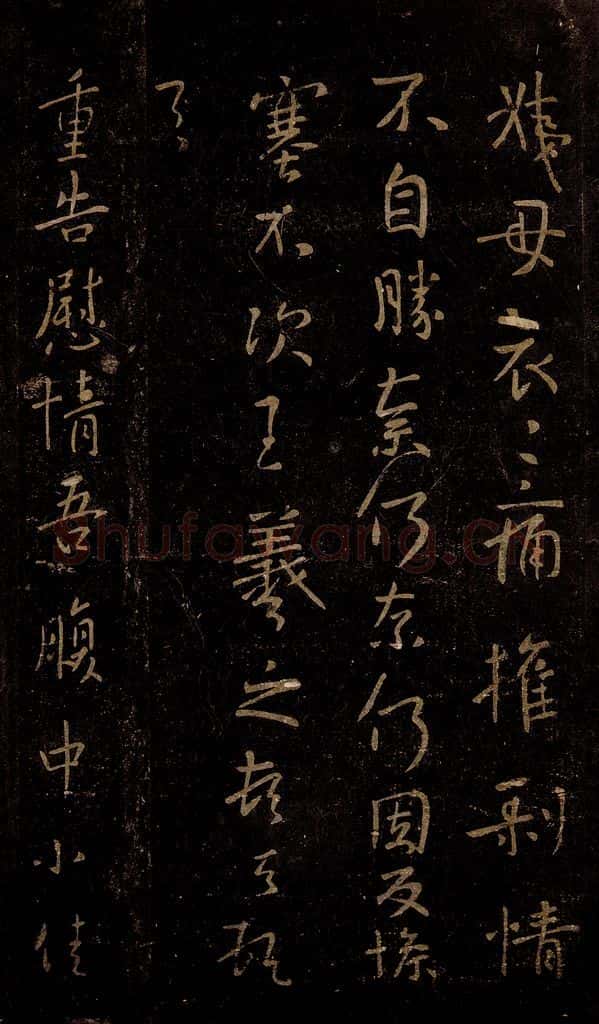 姨母哀〻痛摧剥情
不自勝奈何奈何因反慘
塞不次王羲之頓首頓
首
重告慰情吾腹中小佳
Shufawang.cn